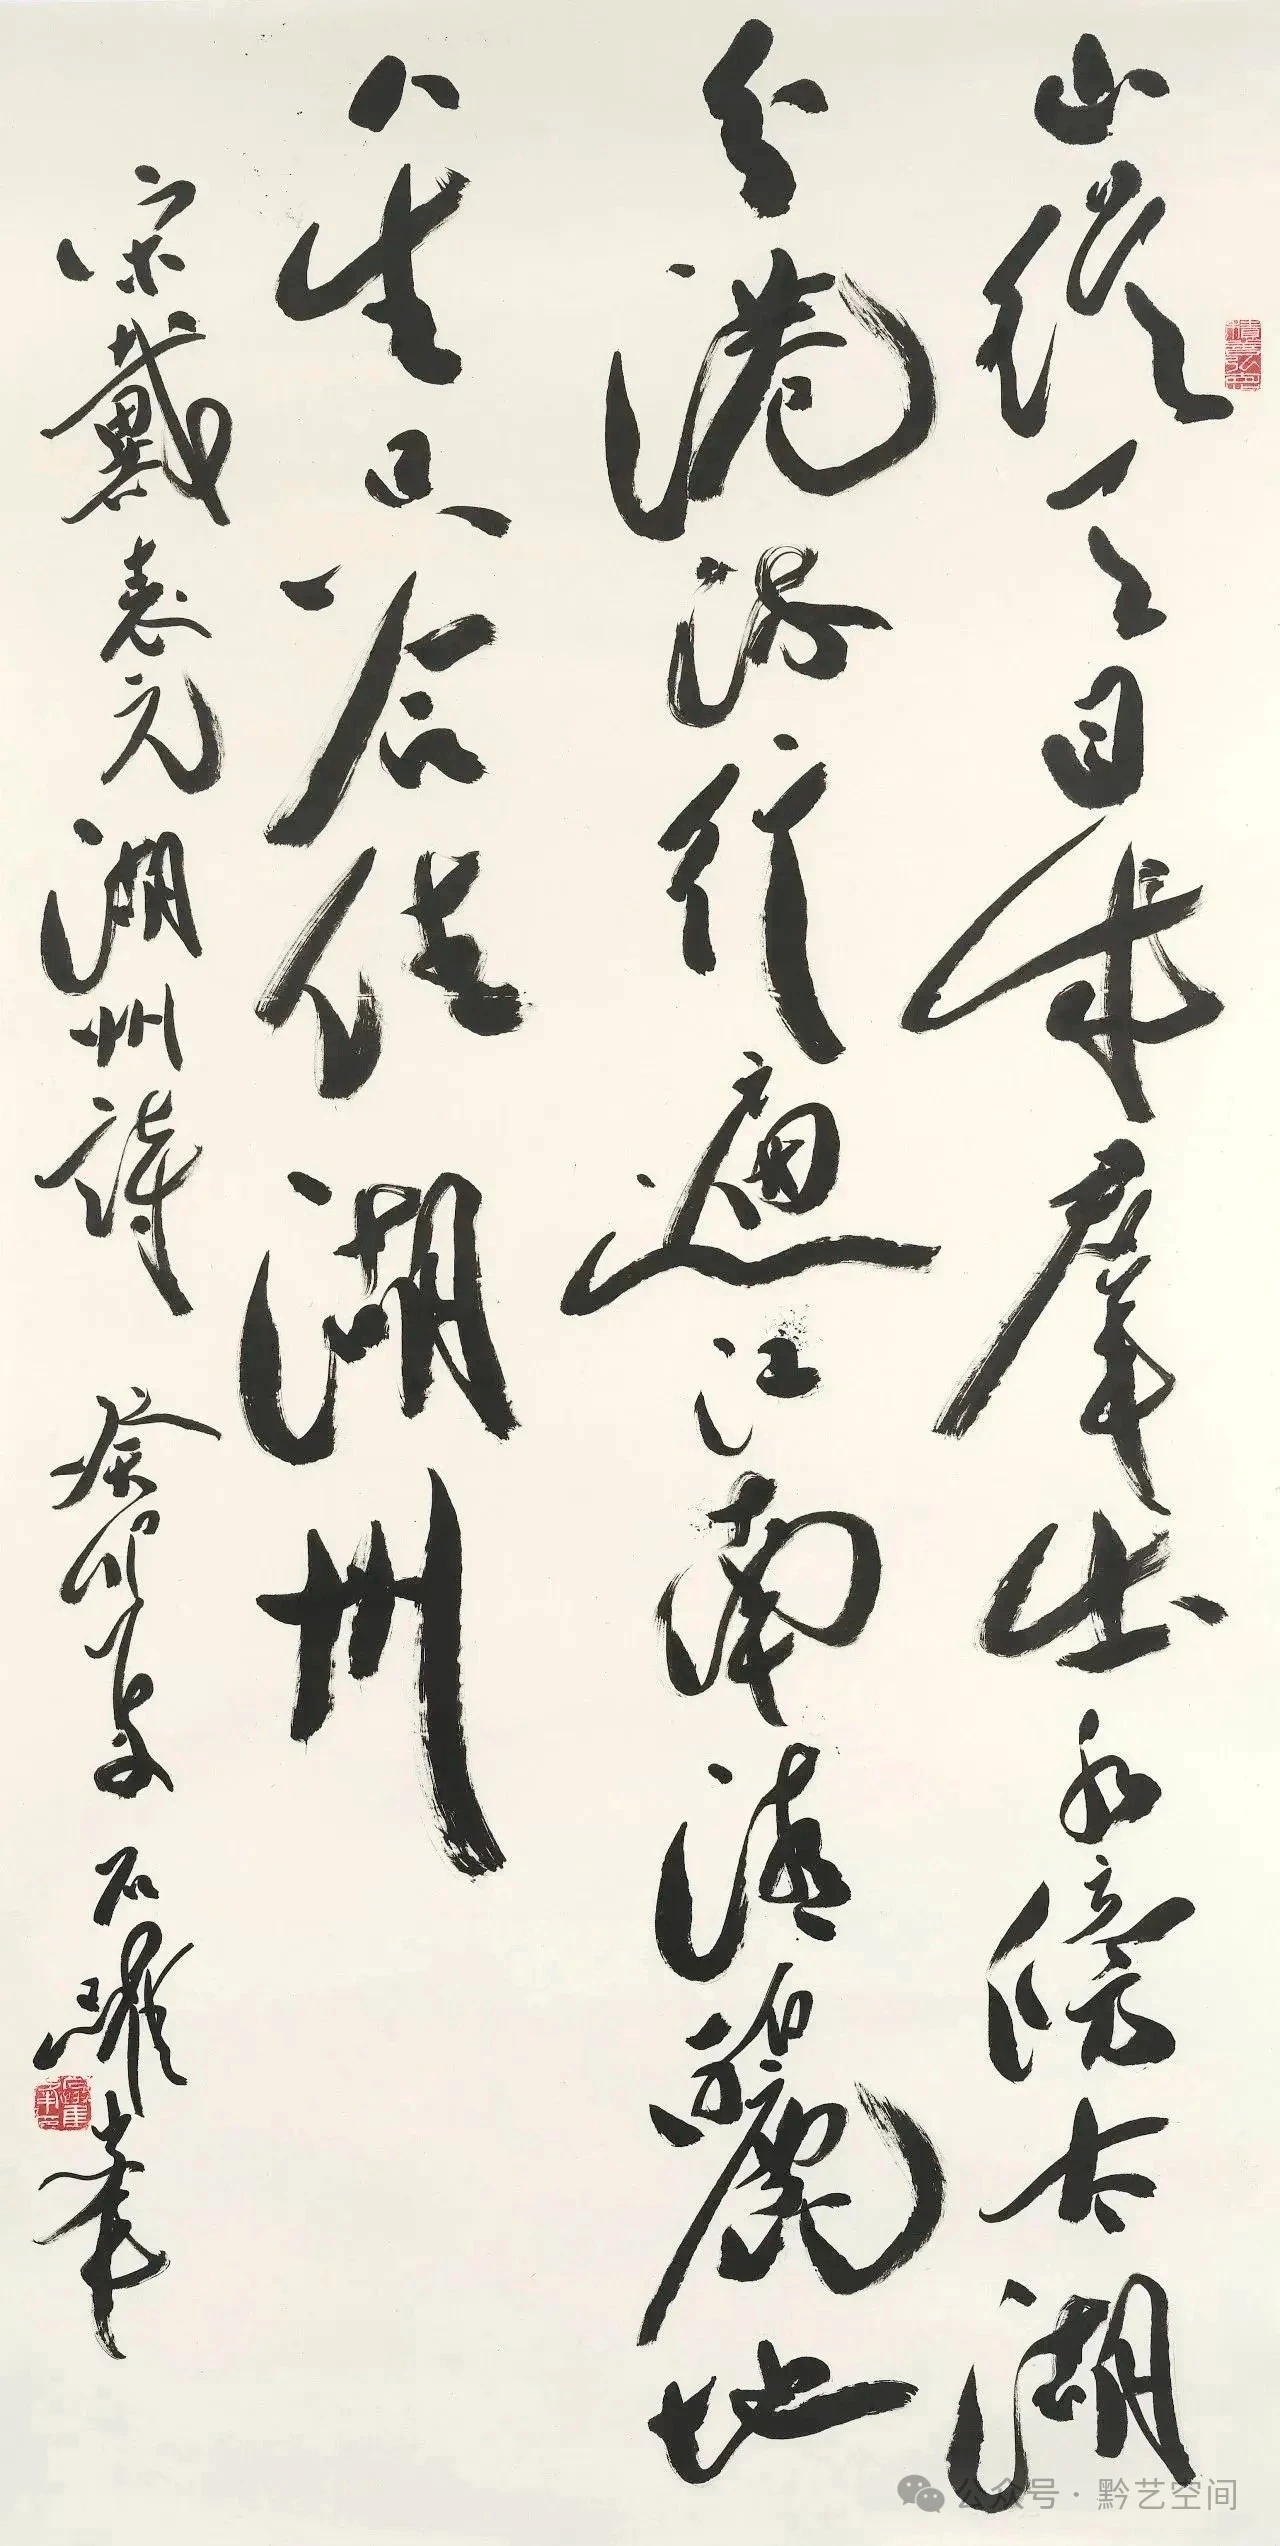 山從天目成羣出水傍太湖
分港流行遍江南清麗地
人生只合住湖州
宋戴表元湖州詩 癸卯 石躍峯
公众号 · 黔艺空间